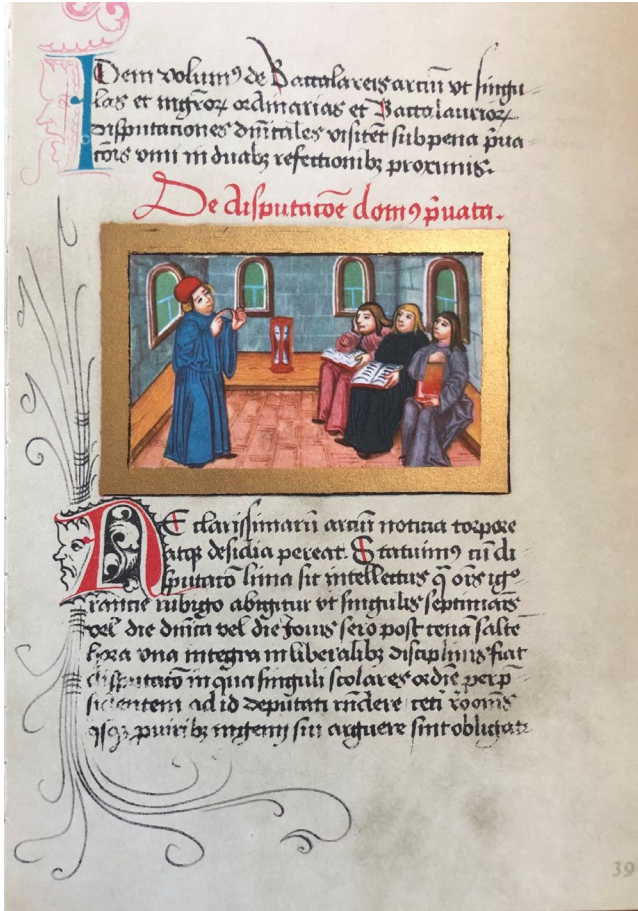 Idem volumꝰ de Baccalareis arciū vt singu-
las et mgrōrꝝ ordinarias et Baccalaurioꝝ
disputaciones dn̄icales visitēt sub pena p̄ua
cōis vini in duabꝫ refectionibꝫ proximis.
De disputacōe domꝰ p̄uata.
NE clarissimarū arciū noticia torpore
atqꝫ desidia pereat. Statuimꝰ cū di
sputacō lima sit intellectus q̄ oīs igno
rancie rubigo abigitur vt singulis septimanis
vel die dn̄ica vel die Jouis sero post cenā salte
hora vna integra in liberalibꝫ disciplinis fiat
disputacō in qua singuli scolares ordīe per p̄
sidentem ad id deputati rn̄dere
ingenij sui arguere sint obligati
39